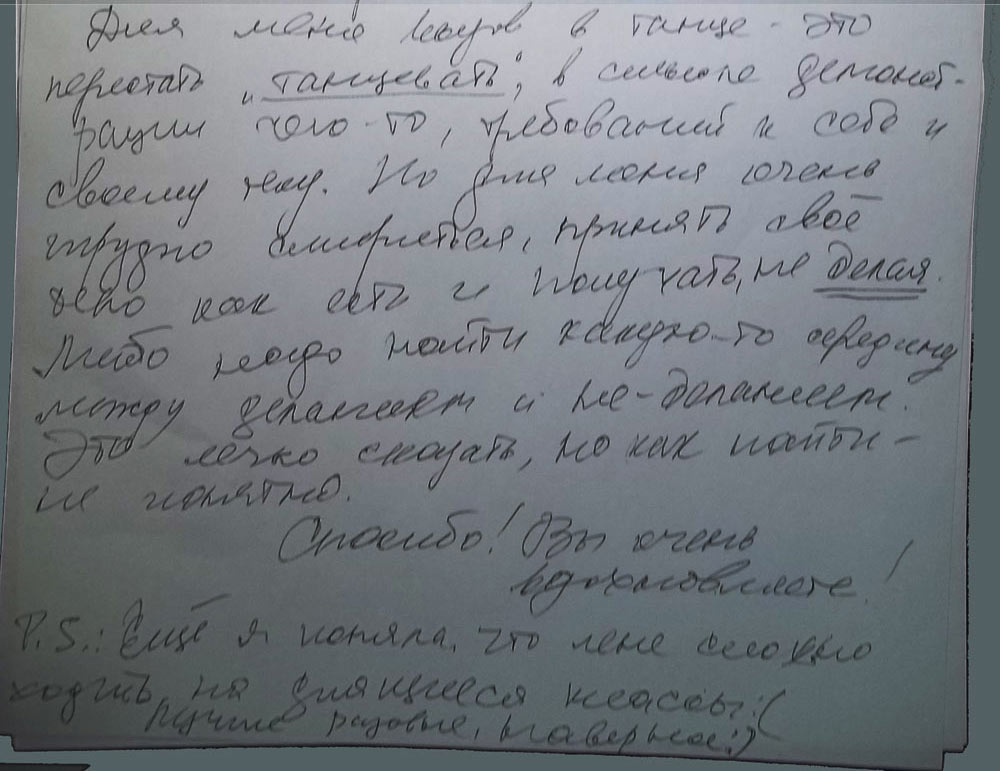 Для меня в танце - это
перестать „танцевать", в смысле демонст-
рации чего-то, требований к себе и
своему телу. Но для меня очень
трудно смириться, принять своё
тело как есть и получать, не делая.
Либо надо найти какую-то середину
между деланием и не-деланием.
Это легко сказать, но как найти -
не понятно.
Спасибо! Вы очень
вдохновляете!
P.S.: Ещё я поняла, что мне сложно
ходить на длящиеся классы :(
Лучше разовые, наверное :)